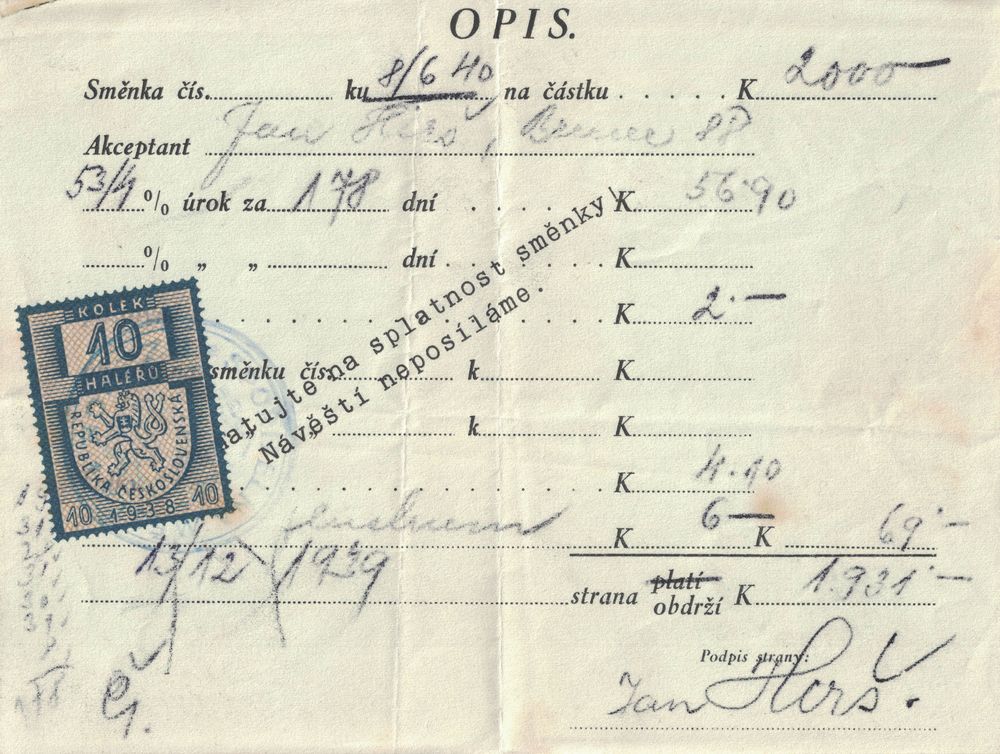 OPIS.
Směnka čís. ku 8/6 40 na částku K 2000—
Akceptant Jan Herš, 88
5 3/4 % úrok za 178 dní K 56·90
% „ „ dní K
K 2·—
směnku čís. k K
k K
K 4·10
K 6— K 69·—
13/12 1939
strana platí obdrží K 1.931·—
Podpis strany:
Jan Herš.
atujte na splatnost směnky!
Návěští neposíláme.
KOLEK
10
HALÉŘŮ
REPUBLIKA ČESKOSLOVENSKÁ
10 1938 10